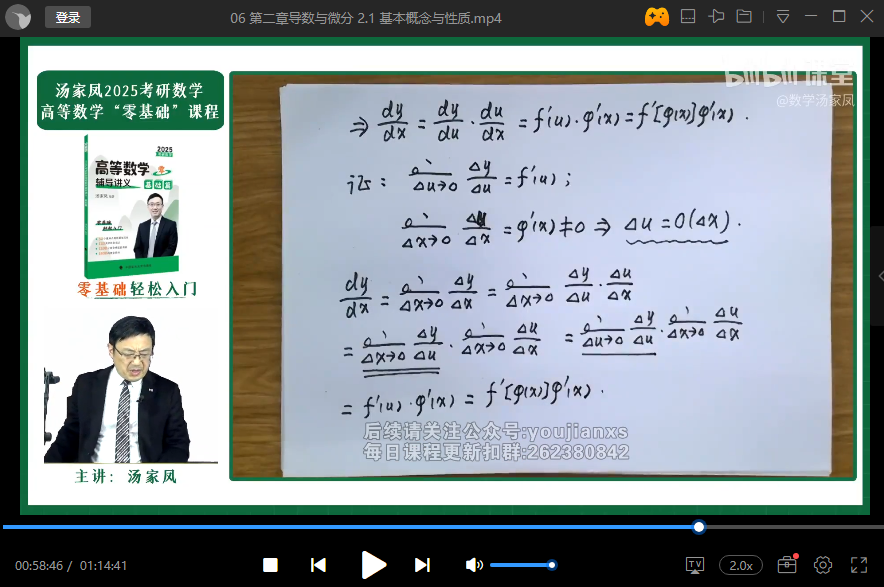 登录
06 第二章导数与微分 2.1 基本概念与性质.mp4
汤家凤2025考研数学
高等数学“零基础”课程
2025
高等数学
辅导讲义
基础篇
零基础
轻松入门
零基础轻松入门
主讲：汤家凤
bilibili课堂
@数学汤家凤
⇒ dy/dx = dy/du · du/dx = f'(u)·φ'(x) = f'[φ(x)]φ'(x).
证: lim Δu→0 Δy/Δu = f'(u);
lim Δx→0 Δu/Δx = φ'(x) ≠ 0 ⇒ Δu = O(Δx).
dy/dx = lim Δx→0 Δy/Δx = lim Δx→0 Δy/Δu · Δu/Δx
= lim Δx→0 Δy/Δu · lim Δx→0 Δu/Δx = lim Δu→0 Δy/Δu · lim Δx→0 Δu/Δx
= f'(u)·φ'(x) = f'[φ(x)]φ'(x).
后续请关注公众号:youjianxs
每日课程更新扣群:262380842
00:58:46 / 01:14:41
TV
2.0x